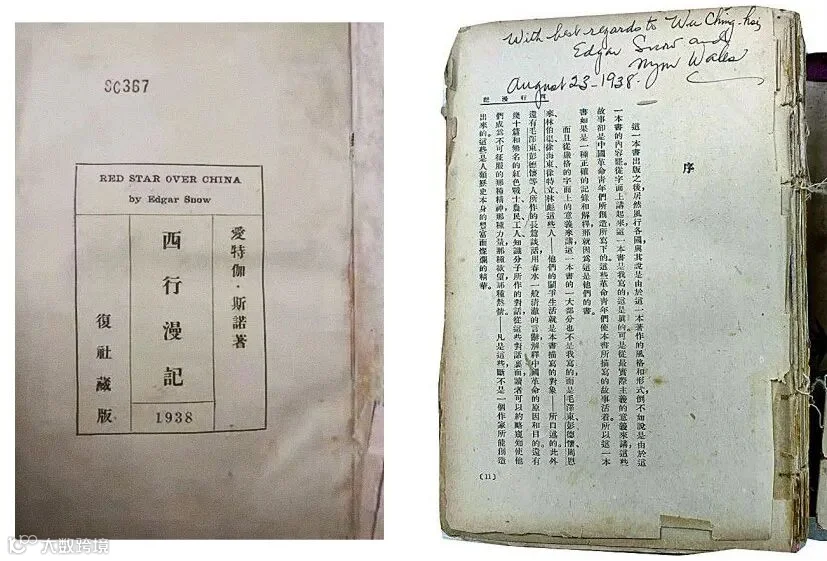 SC367
RED STAR OVER CHINA
by Edgar Snow
愛特伽·斯諾著
西行漫記
1938
復社藏版
With best regards to Wu Ching-hsi
Edgar Snow and
Nym Wales
August 23-1938.
西行漫記
序
這一本書出版之後,居然風行各國,與其說是由於這一本著作的風格和形式,倒不如說是由於這
一本書的內容罷。從字面上講起來,這一本書是我寫的,這是真的。可是從最實際主義的意義來講,這些
故事卻是中國革命青年們所創造,所寫下的。這些革命青年們使本書所描寫的故事活着。所以這一本
書如果是一種正確的記錄和解釋,那就因爲這是他們的書。
而且從嚴格的字面上的意義來講,這一本書的一大部分也不是我寫的,而是毛澤東、彭德懷、周恩
來、林伯渠、徐海東、徐特立、林彪這些人——他們的鬭爭生活就是本書描寫的對象——所口述的。此外
還有毛澤東、彭德懷等人所作的長篇談話,用春水一般清澈的言辭,解釋中國革命的原因和目的。還有
幾十篇和無名的紅色戰士、農民、工人、知識分子所作的對話,從這些對話裏面,讀者可以約略窺知使他
們成爲不可征服的那種精神,那種力量,那種欲望,那種熱情。——凡是這些,斷不是一個作家所能創造
出來的。這些是人類歷史本身的豐富而燦爛的精華。
(11)
大数跨境